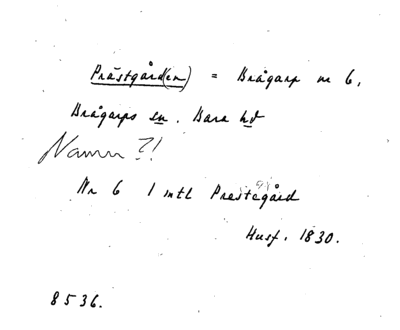 Prästgård(en) = Brågarp nr 6,
Brågarps sn. Bara hd
Namn?!
Nr 6 1 mtl Prestegård
Husf. 1830.
8536.